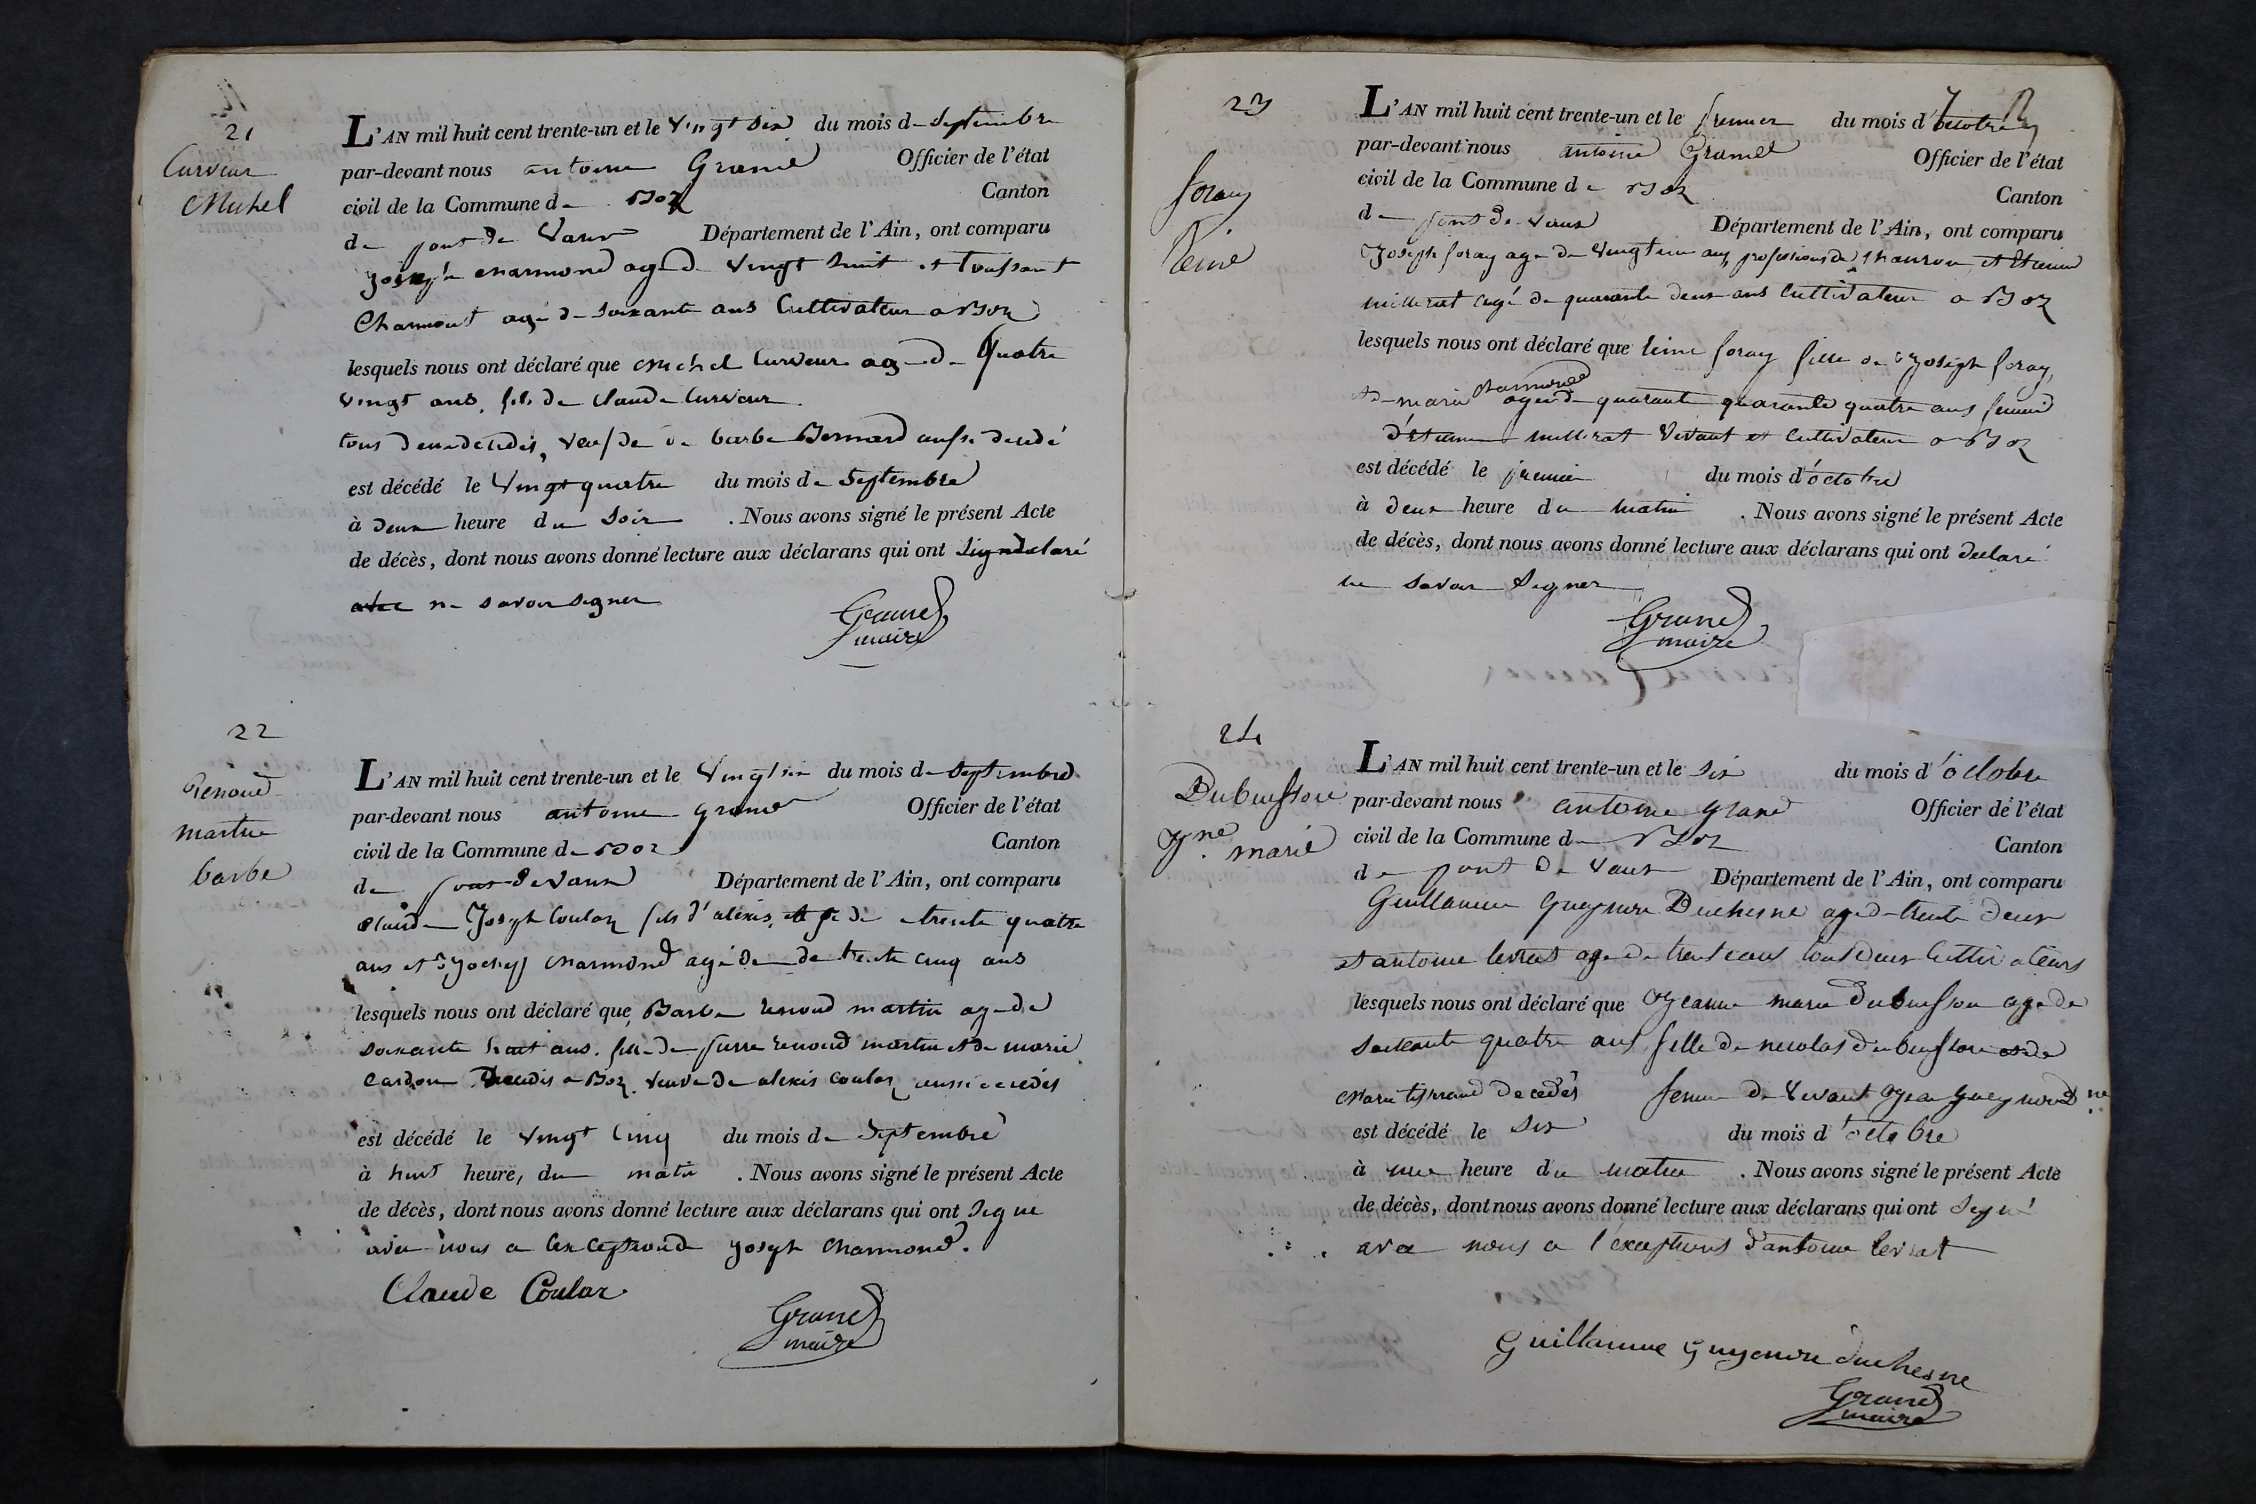 21
Curveur
Michel
L'AN mil huit cent trente-un et le vingt six du mois de Septembre
par-devant nous antoine Grand Officier de l'état
civil de la Commune de Boz Canton
de pont de Vaux Département de l'Ain, ont comparu
joseph charmond agé de vingt huit et Toussaint
Charmont agé de soixante ans Cultivateur a Boz
lesquels nous ont déclaré que michel Curveur agé de quatre
vingt ans, fils de Claude Curveur
tous deux décédés, veuf de barbe Bernard aussi décédé
est décédé le vingt quatre du mois de Septembre
à deux heure du soir . Nous avons signé le présent Acte
de décès, dont nous avons donné lecture aux déclarans qui ont déclaré
avec ne savoir signer
Grand
maire
22
Renoud
martin
barbe
L'AN mil huit cent trente-un et le vingt six du mois de Septembre
par-devant nous antoine grand Officier de l'état
civil de la Commune de Boz Canton
de pont de vaux Département de l'Ain, ont comparu
Claude Joseph Coulas fils d'alexis, agé de trente quatre
ans et joseph charmond agé de de trente cinq ans
lesquels nous ont déclaré que Barbe renoud martin agé de
soixante huit ans, fille de pierre renoud martin et de marie
Cardon décédés a Boz, veuve de alexis coulas aussi décédés
est décédé le vingt cinq du mois de Septembre
à huit heure, du matin . Nous avons signé le présent Acte
de décès, dont nous avons donné lecture aux déclarans qui ont signe
avec nous a l'exceptions de joseph charmond.
Claude Coulas
Grand
maire
23
foray
Reine
L'AN mil huit cent trente-un et le premier du mois d'octobre
par-devant nous antoine Grand Officier de l'état
civil de la Commune de Boz Canton
de pont de vaux Département de l'Ain, ont comparu
Joseph foray agé de vingt un ans, profession de et Etienne
millerat agé de quarante deux ans Cultivateur a Boz
lesquels nous ont déclaré que Reine foray fille de Joseph foray,
et de marie charmond agé de quarante quarante quatre ans femme
d'étienne millerat vivant et Cultivateur a Boz
est décédé le premier du mois d'octobre
à deux heure du matin . Nous avons signé le présent Acte
de décès, dont nous avons donné lecture aux déclarans qui ont declaré
ne savoir Signer
Grand
maire
24
Dubuisson
Jne marie
L'AN mil huit cent trente-un et le six du mois d'octobre
par-devant nous antoine grand Officier de l'état
civil de la Commune de Boz Canton
de pont de vaux Département de l'Ain, ont comparu
Guillaume Gueynon Duchesne agé de trente deux
et antoine levrat agé de trente ans tous deux Cultivateurs
lesquels nous ont déclaré que Jeanne marie dubuisson agé de
soixante quatre ans fille de nicolas dubuisson et de
marie tisserand decedés femme de vivant Jean gueynon Dne
est décédé le six du mois d'octobre
à une heure du matin . Nous avons signé le présent Acte
de décès, dont nous avons donné lecture aux déclarans qui ont signé
avec nous a l'exceptions d'antoine levrat
Guillaume Guyenon duchesne
Grand
maire